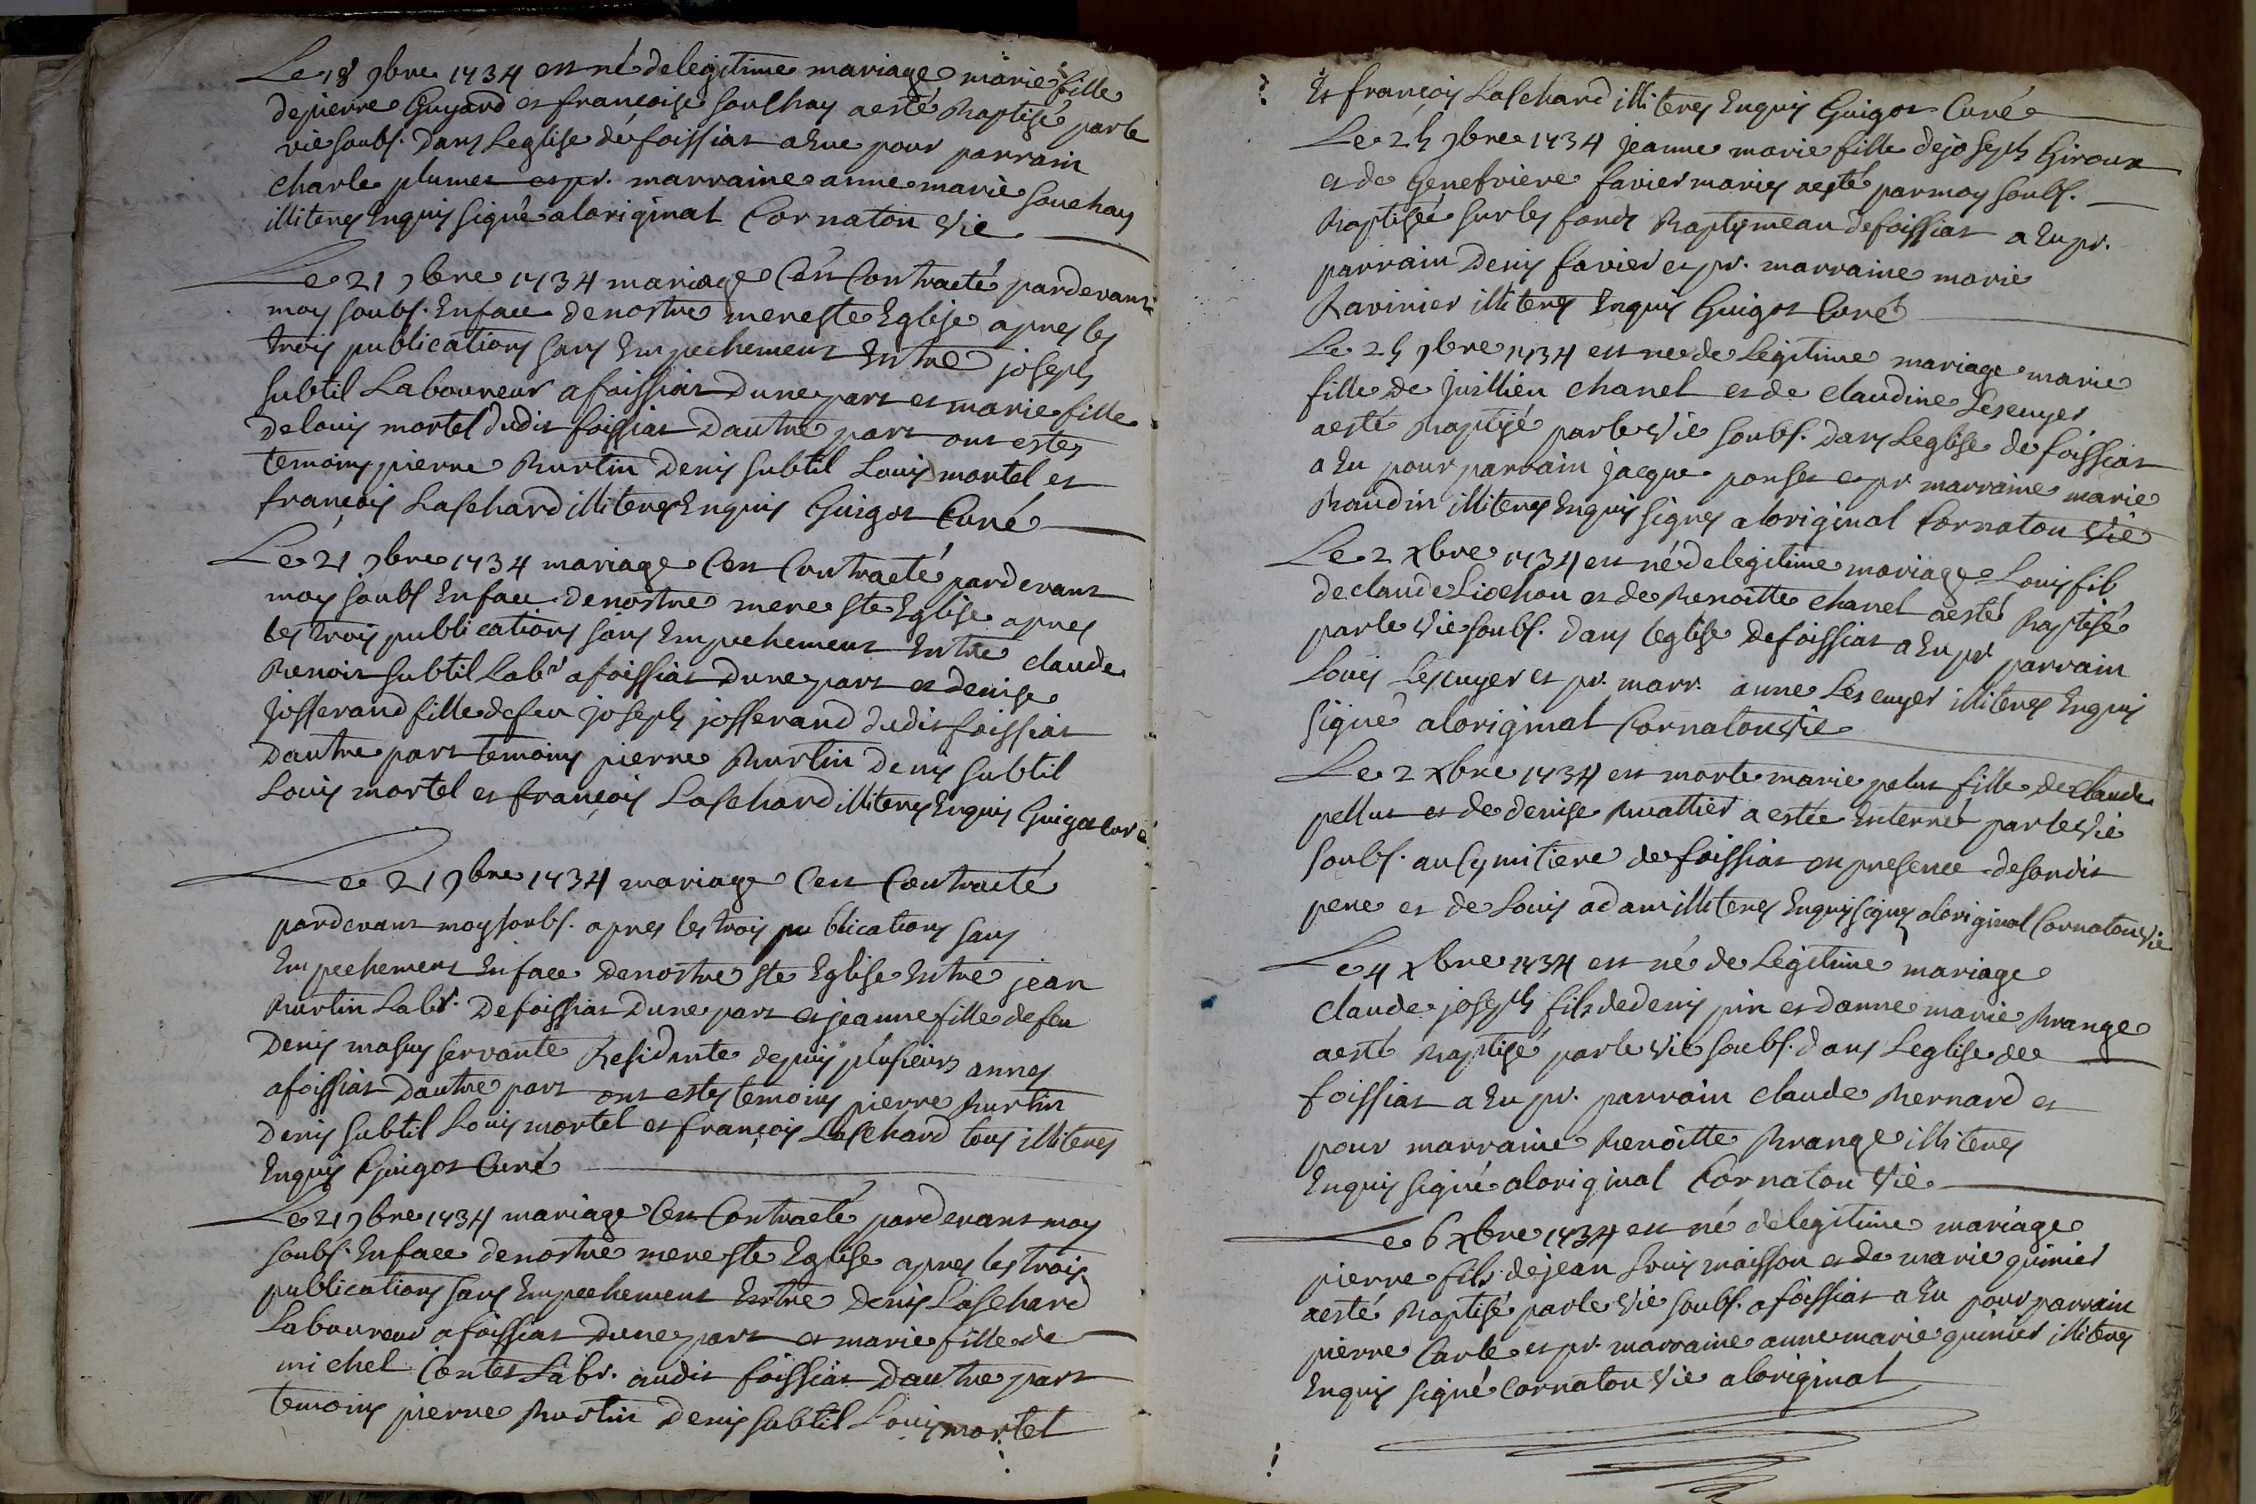 Le 18 9bre 1734 est né delegitime mariage marie fille
depierre Guyard et françoise Souchay aesté Baptisé parle
vic soubs. Dans Leglise de foissiat aEue pour parrain
charle plumet et pr. marraine anne marie Souchay
illiteres Enquis signé aloriginal Cornaton Vic
Le 21 9bre 1734 mariage C'est Contracté pardevant
moy soubs. Enface denostre mere ste Eglise apres les
trois publications sans Empechement Entre joseph
Subtil Laboureur afoissiat Dunepart et marie fille
delouis mortel dudit foissiat Dautre part ont estes
temoins pierre Burtin Denis subtil Louis mortel et
françois Laschard illiteres Enquis Guigot Curé
Le 21 9bre 1734 mariage Cest Contracté pardevant
moy soubs Enface denostre mere ste Eglise apres
les trois publications sans Empechement Entre claude
Benoit subtil Labr afoissiat Dunepart et denise
Josserand fille defeu joseph josserand dudit foissiat
Dautre part temoins pierre Burtin Denis subtil
Louis mortel et françois Laschard illiteres Enquis Guigot Curé
Le 21 9bre 1734 mariage Cest Contracté
pardevant moy soubs. apres les trois publications sans
Empechement Enface Denostre ste Eglise Entre jean
Burtin Labr. Defoissiat Dunepart et jeanne fille defeu
Denis masuy servante Residante depuis plusieurs annes
afoissiat Dautre part ont estes temoins pierre Burtin
Denis subtil Louis mortel et françois Laschard tous illiteres
Enquis Guigot Curé
Le 21 9bre 1734 mariage Cest Contracté pardevant moy
soubs. Enface denostre mere ste Eglise apres les trois
publications sans Empechement Entre Denis Laschard
Laboureur afoissiat Dunepart et marie fille de
michel Contet Labr. audit foissiat Dautre part
temoins pierre Burtin Denis subtil Louis mortel
Et françois Laschard illiteres Enquis Guigot Curé
Le 25 9bre 1734 jeanne marie fille dejoseph Giroux
et de Genefvieve favier maries aesté parmoy soubs.
Baptisée sur les fonds Baptismeau defoissiat a Eu pr.
parrain Denis favier et pr. marraine marie
Ravinier illiteres Enquis Guigot Curé
Le 25 9bre 1734 est née de Legitime mariage marie
fille de Juillien chanel et de claudine Lescuyer
aesté Baptisé parle Vic soubs. Dans Leglise de foissiat
a Eu pour parrain jacque ponset et pr marraine marie
Baudin illiteres Enquis signes aloriginal Cornaton Vic
Le 2 xbre 1734 est né delegitime mariage Louis fils
declaude Liochon et de Benoitte chanel aesté Baptisé
parle Vic soubs. dans leglise defoissiat a Eu pr parrain
Louis Lescuyer et pr. marr. anne Lescuyer illiteres Enquis
signé aloriginal Cornaton Vic
Le 2 xbre 1734 est morte marie pelus fille de claude
pellus et de denise Buattier a estée Enterré parle Vic
soubs. au Cymitiere de foissiat en presence desondit
pere et de Louis adam illiteres Enquis signes aloriginal Cornaton Vic
Le 4 xbre 1734 est né de Legitime mariage
claude joseph fils dedenis pin et danne marie Brange
aesté Baptisé parle Vic soubs. dans Leglise de
foissiat a Eu pr. parrain claude Bernard et
pour marraine Benoitte Brange illiteres
Enquis signé aloriginal Cornaton Vic
Le 6 xbre 1734 est né delegitime mariage
pierre fils dejean Louis maisson et de marie quinier
aesté Baptisé parle Vic soubs. afoissiat a Eu pour parrain
pierre Carle et pr. marraine anne marie quinier illiteres
Enquis signé Cornaton Vic aloriginal